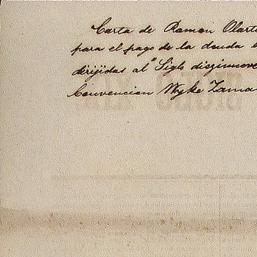 Carta de Ramon Olart
para el pago de la deuda
dirijidas al "Siglo diezinueve
Convencion Wyke Zama